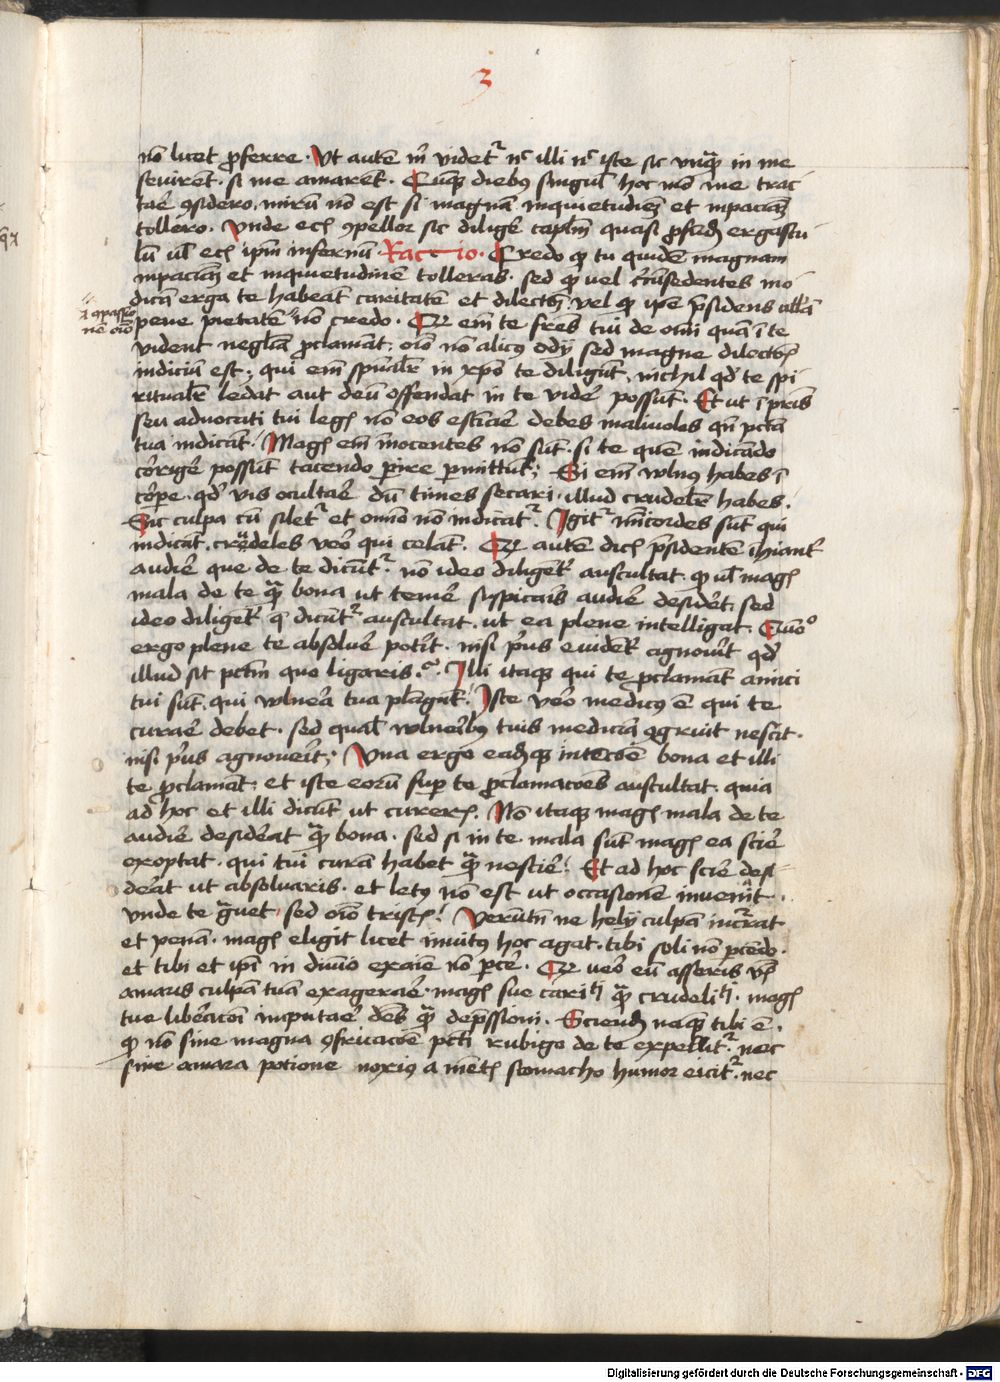 3
nō licet ꝓferre · Vt autē m̄ videtᷣ nᶜ illi nᶜ iste sic vnqᷓ in me
seuirēt · si me amarēt · Cūqꝫ diebꝰ singul̄ hoc mō me trac
tar̄ ꝯsidero · mirū nō est si magnā inquietudinē et inpaciaꝫ
tollero · Vnde ecī ꝯpellor sic diligēr capl̄m quasi ꝓfūdū ergastu
lū ul̄ ecī ipm̄ infernū · Racio · Credo qꝫ tu quidem magnam
inpaciaꝫ et inquietudinēm tolleras · sed qꝫ vel ꝯsedentes mō
dicā erga te habeāt caritatē et dilectōꝫ · vel qꝫ ipse p̄sidens
pene pietatē nō credo · Qꝫ em̄ te fr̄es tui de om̄i quā ī te
vident negl̄cia ꝓclamāt · oīo nō alicꝰ odij sed magne dilectōis
indiciū est · qui em̄ sp̄ual̄r in xp̄o te diligūt · nichil qd̓ te spi
ritual̄r ledat aut deū offendat in te vider̄ possūt · Et ut ī p̄ris
seu aduocati tui legis nō eos estīar̄e debes maliuolos qn̄ pctā
tua indicāt · Magis em̄ īnocentes nō sūt · si te quē indicādo
corriger̄ possūt tacendo ꝑire ꝑmittūt · Si em̄ vulnꝰ habes ī
corpe · qd̓ vis ocultar̄ dū times secari · illud crudel̄r habes ·
Sic culpa cū siletᷣ et omīo nō indicatᷣ · Igitᷣ mīcordes sūt qui
indicāt · crudeles vero qui celāt · Qꝫ autem dicis p̄sidentem īhiantᷣ
audir̄ que de te dicūtᷣ · nō ideo diligēr auscultat · qꝫ ul̄ magis
mala de te qᷓ bona ut temer̄ suspicaris audir̄ desiderꝫ · sed
ideo diligēr que dicūtᷣ auscultat · ut ea plene intelligat · Quōo
ergo plene te absoluer̄ poterit · nisi prius euidēr agnouerit qd̓
illud sit pctm̄ quo ligaris · Illi itaqꝫ qui te ꝓclamāt amici
tui sūt · qui vulnera tua plāgūt · Iste vero medicus ē qui te
curar̄e debet · sed qual̄ vulneribꝰ tuis medicīa ꝯgruit nescit ·
nisi prius agnouerit · Vna ergo eademqꝫ intencōe bona et illi
te ꝓclamāt · et iste eorū sup̄ te ꝓclamacōes auscultat · quia
ad hoc et illi dicūt ut cureris · Nō itaqꝫ magis mala de te
audir̄e desiderat qᷓ bona · sed si in te mala sūt magis ea scir̄e
exoptat · qui tui curā habet qᷓ nescir̄e · Et ad hoc scir̄e desi
derat ut absoluaris · et letus nō est ut occasionē inueniat ·
vnde te grauet · sed oīo tristis · Verūtn̄ ne hely culpā incurrat
et penā · magis eligit licet inuitus hoc agat · tibi soli nō parcēdo ·
et tibi et ipī in diuīo exaīe nō parcer̄ · Qꝫ vero eū asseris verbis
amaris culpā tuā exagerar̄e · magis sue caritati qᷓ crudelitati · magis
tue liberacōi imputar̄e debes qᷓ depressioni · Sciendū naqꝫ tibi ē ·
qꝫ nō sine magna ꝯfricacōe pcti rubigo de te expellitᷣ · nec
sine amara potione noxius a mētis stomacho humor eicitᷣ · nec
Digitalisierung gefördert durch die Deutsche Forschungsgemeinschaft - DFG